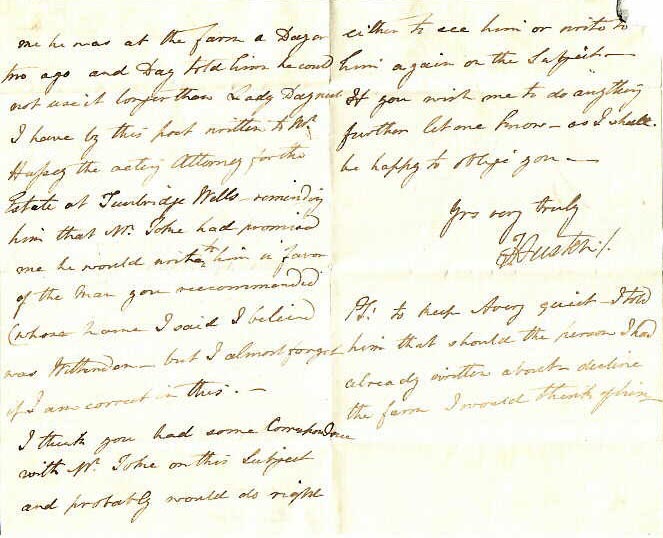 me he was at the farm a Day or
two ago and Day told him he could
not use it longer than Lady Day next
I have by this post written to Mr.
Hussey the acting Attorney for the
Estate at Tunbridge Wells - reminding
him that Mr. Toke had promised
me he would write to him in favor
of the Man you reccommended
(whose name I said I beleive
was Witherden - but I almost forget
if I am correct in this. -
I think you had some Correspondence
with Mr. Toke on this Subject
and probably would do right
either to see him or write to
him again on the Subject -
If you wish me to do anything
further let me know - as I shall
be happy to oblige you -
Yrs very truly
PS: to keep Avery quiet - I told
him that should the person I had
already written about - decline
the farm I would think of him -